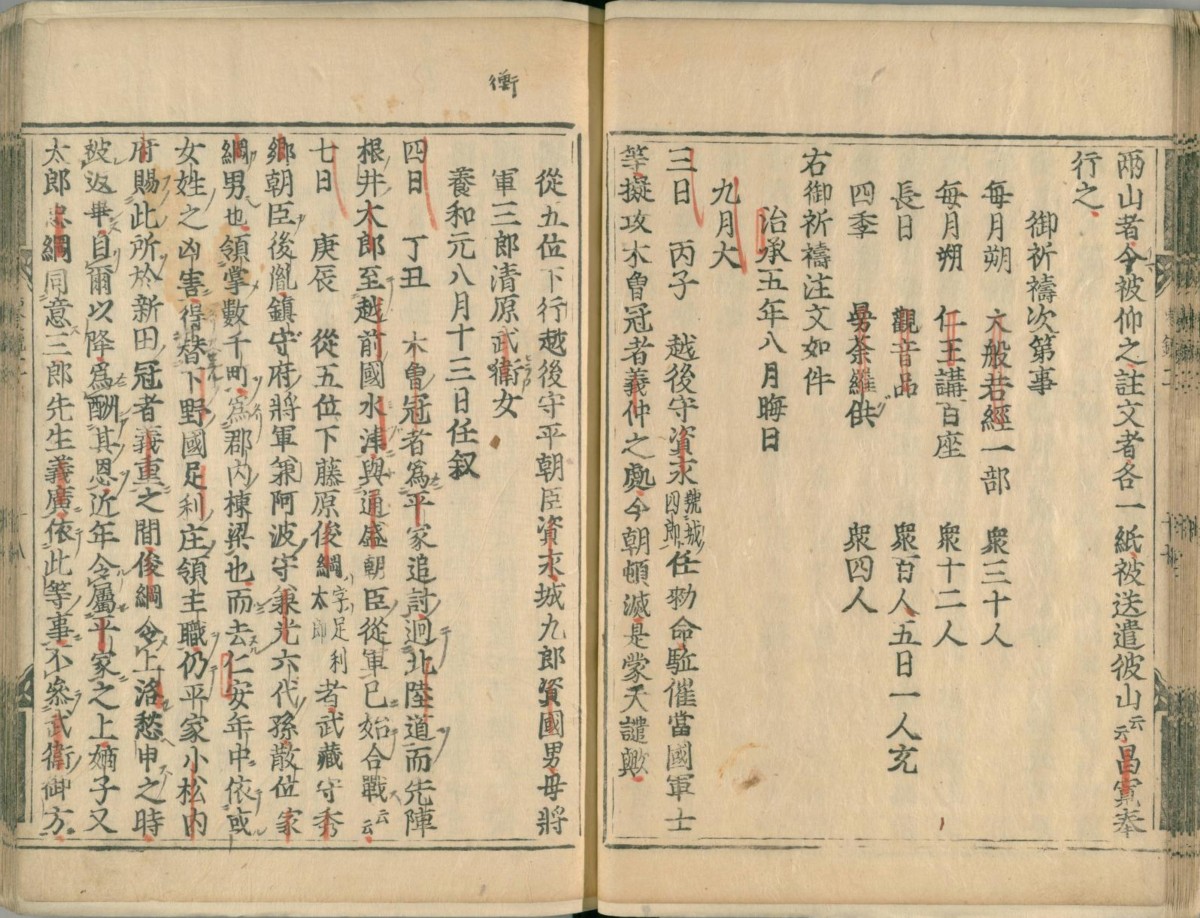 兩山者今被仰之註文者各一紙被送遣彼山云云昌寛奉
行之
御祈禱次第事
每月朔 大般若經一部 衆三十人
每月朔 仁王講百座 衆十二人
長日 觀音品 衆百人五日一人充
四季 曼荼羅供 衆四人
右御祈禱注文如件
治承五年八月晦日
九月大
三日 丙子 越後守資永號城四郎任勅命駈催當國軍士
等擬攻木曾冠者義仲之處今朝頓滅是蒙天譴歟
從五位下行越後守平朝臣資永城九郎資國男母將
軍三郎清原武衡女
養和元八月十三日任叙
四日 丁丑 木曾冠者爲平家追討迴北陸道而先陣
根井太郎至越前國水津與通盛朝臣從軍已始合戰云云
七日 庚辰 從五位下藤原俊綱字足利太郎者武藏守秀
鄕朝臣後胤鎭守府將軍兼阿波守兼光六代孫散位家
綱男也領掌數千町爲郡内棟梁也而去仁安年中依或
女姓之凶害得替下野國足利庄領主職仍平家小松内
府賜此所於新田冠者義重之間俊綱令上洛愁申之時
被返畢自爾以降爲酬其恩近年令屬平家之上嫡子又
太郎忠綱同意三郎先生義廣依此等事不參武衞御方
衝